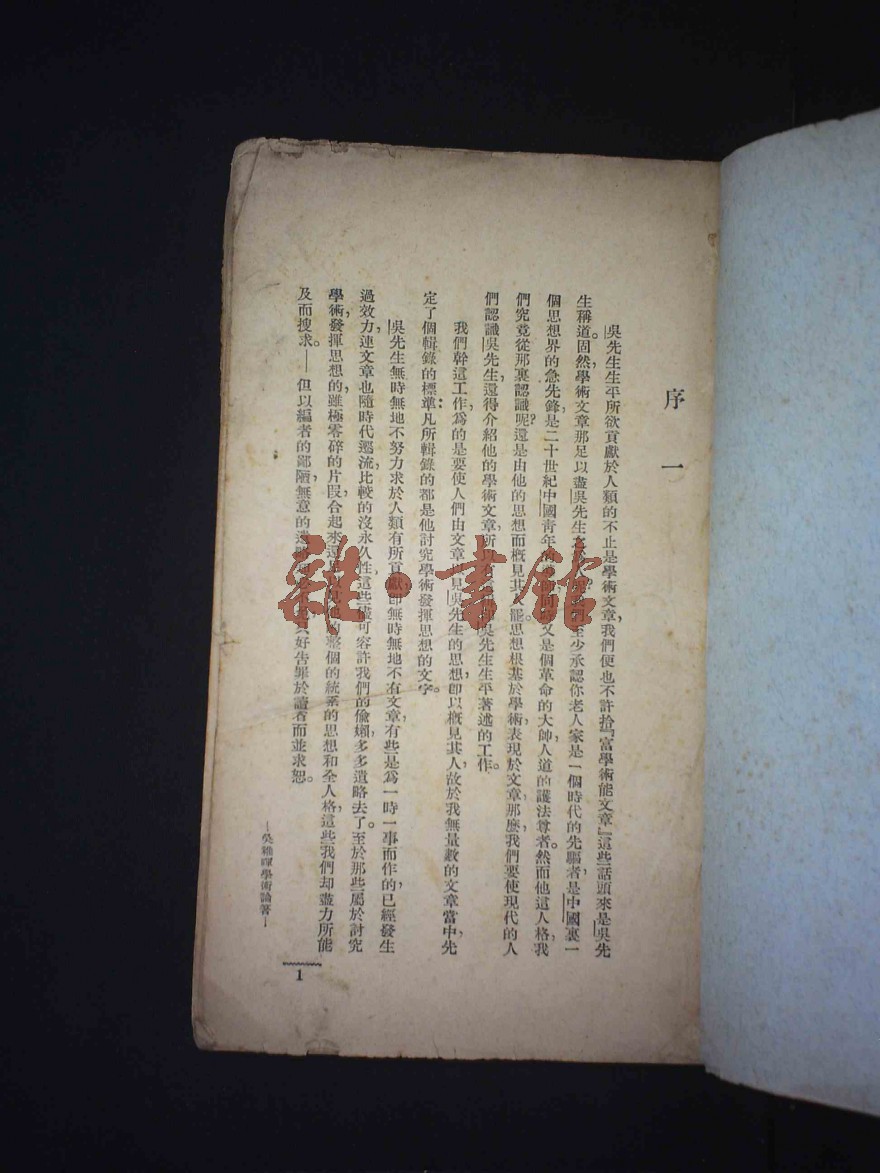 序一
吳先生生平所欲貢獻於人類的不止是學術文章,我們便也不許拾『富學術能文章』這些話頭來是吳先
生稱道。固然,學術文章那足以盡吳先生 我們至少承認你老人家是一個時代的先驅者,是中國裏一
個思想界的急先鋒,是二十世紀中國青年 又是個革命的大帥,人道的護法尊者。然而他這人格,我
們究竟從那裏認識呢?還是由他的思想而概見其人罷。思想根基於學術,表現於文章,那麼,我們要使現代的人
們認識吳先生,還得介紹他的學術文章,所以 吳先生生平著述的工作。
我們幹這工作,爲的是要使人們由文章 見吳先生的思想,即以概見其人,故於我無量數的文章當中,先
定了個輯錄的標準:凡所輯錄的都是他討究學術發揮思想的文字。
吳先生無時無地不努力求於人類有所貢獻,即無時無地不有文章,有些是爲一時一事而作的,已經發生
過效力,連文章也隨時代遷流,比較的沒永久性,這些儘可容許我們的偷嬾,多多遺略去了。至於那些屬於討究
學術,發揮思想的,雖極零碎的片段,合起來還 整個的統系的思想和全人格,這些我們却盡力所能
及而搜求。——但以編者的鄙陋,無意的遺略 只好告罪於讀者而並求恕。
—吳稚暉學術論著—
1
雜·書館